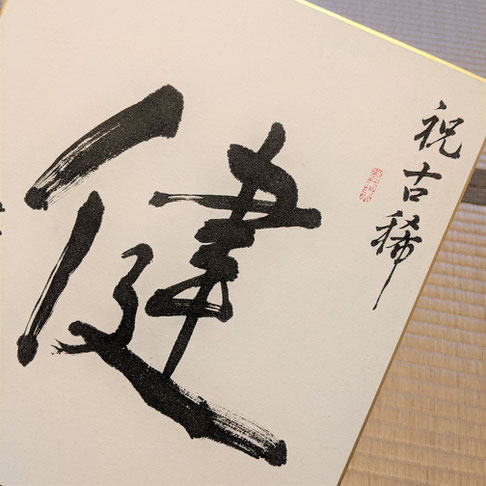 祝古稀
健